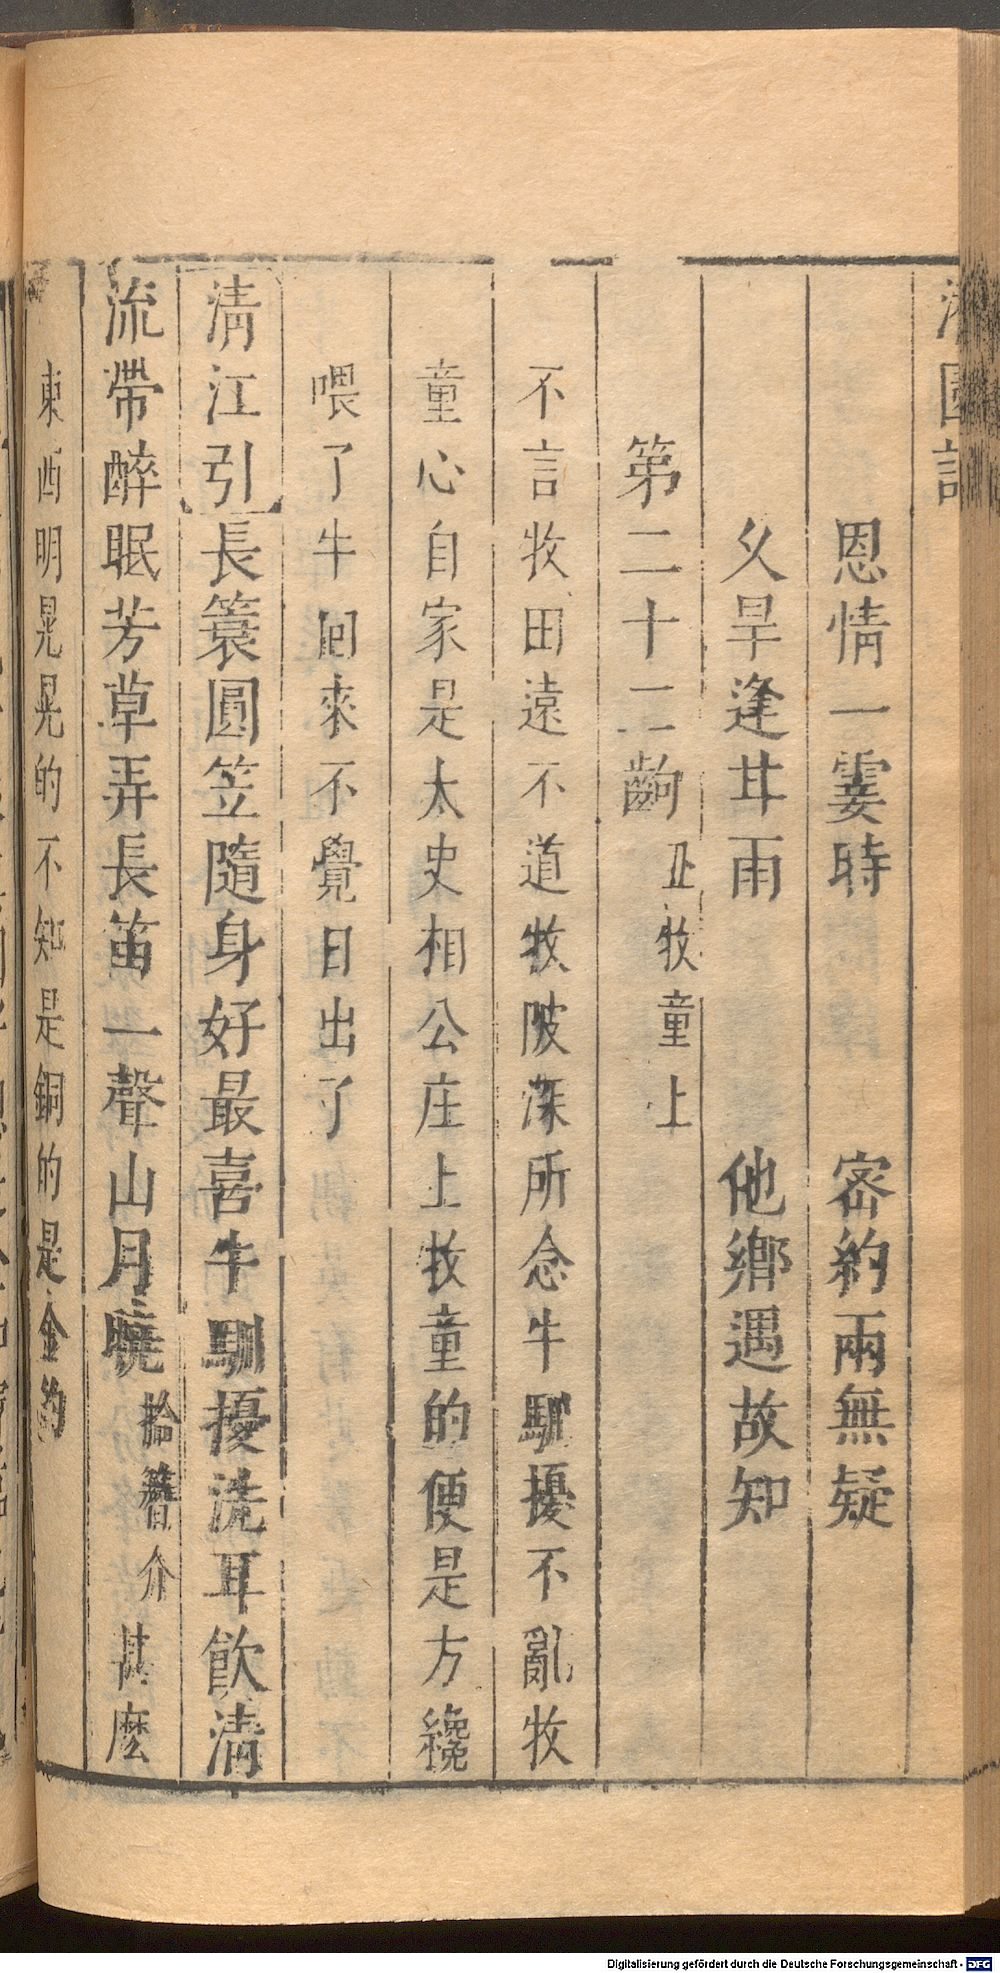 恩情一霎時　密約兩無疑
乆旱逢甘雨　他鄉遇故知
第二十二齣　丑牧童上
不言牧田遠不道牧陂深所念牛馴擾不亂牧
童心自家是太史相公庄上牧童的便是方纔
喂了牛回來不覺日出了
清江引長簑圓笠隨身好最喜牛馴擾洗耳飲清
流帶醉眠芳草弄長笛一聲山月曉拾簪介甚麽
東西明晃晃的不知是銅的是金的
Digitalisierung gefördert durch die Deutsche Forschungsgemeinschaft - DFG